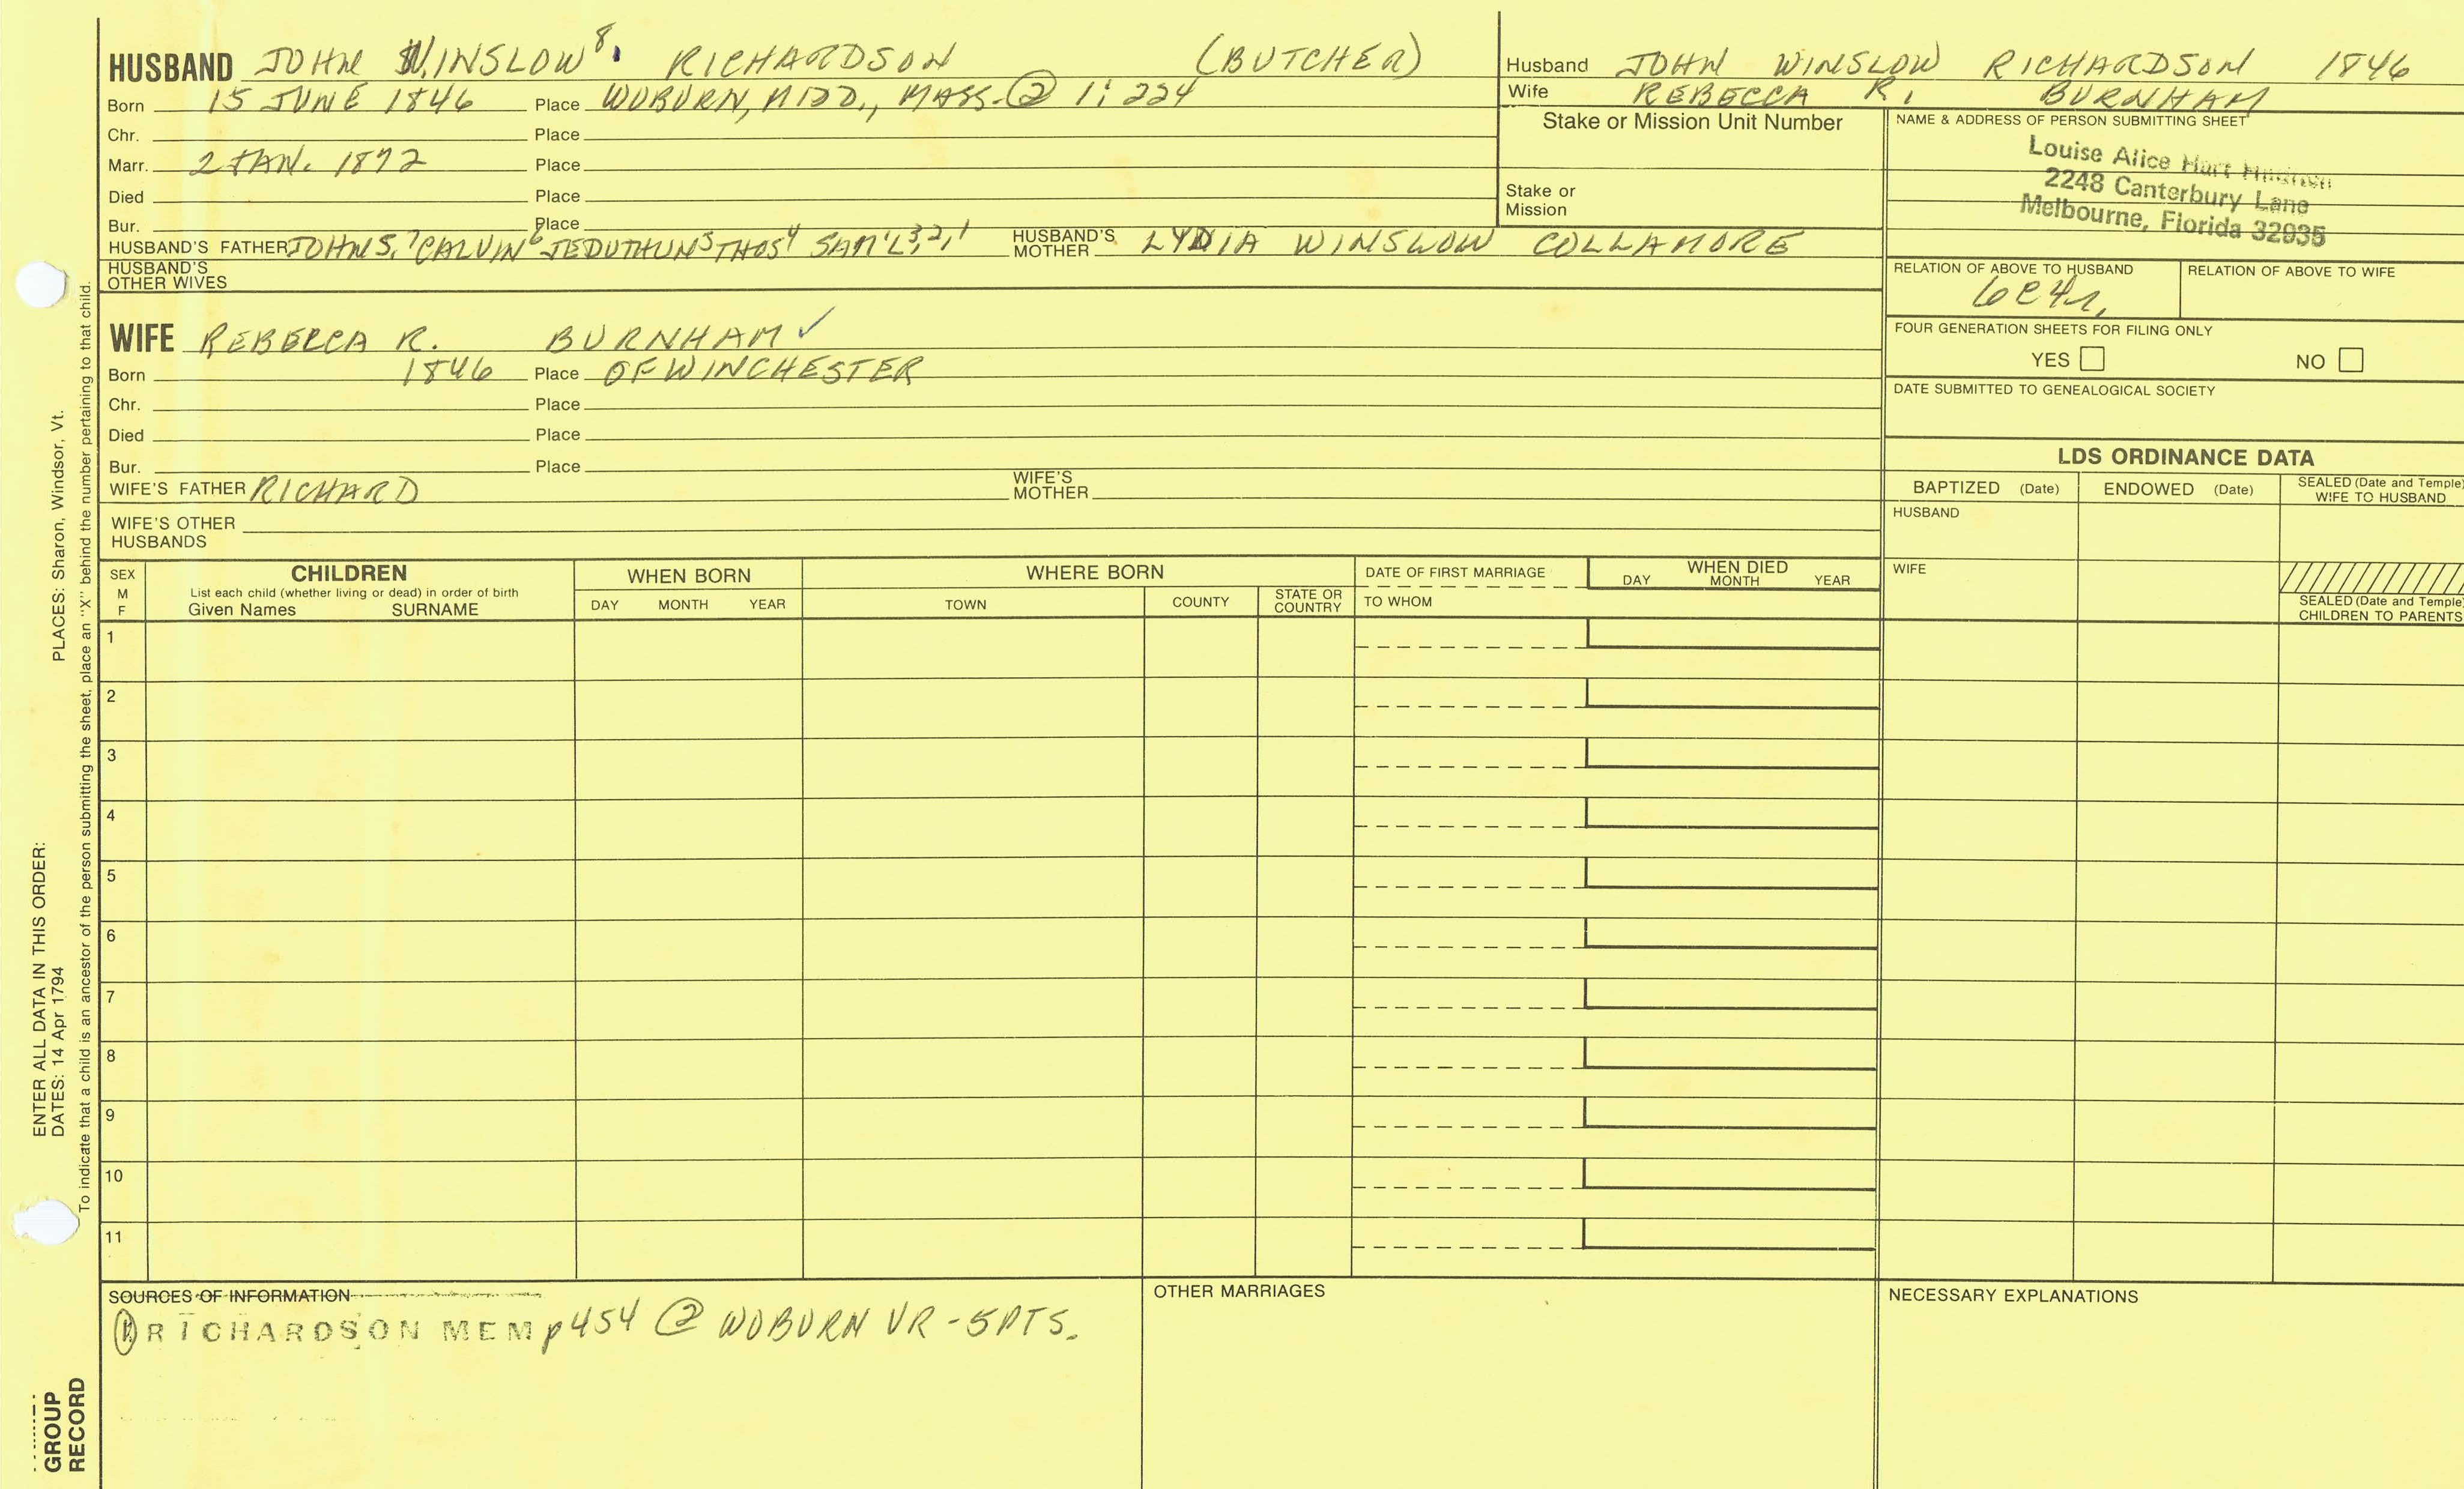 HUSBAND JOHN WINSLOW⁸. RICHARDSON (BUTCHER)
Born 15 JUNE 1846 Place WOBURN, MIDD., MASS. ② 1:224
Chr. Place
Marr. 2 JAN. 1872 Place
Died Place
Bur. Place
HUSBAND'S FATHER JOHN S.⁷ CALVIN⁶ JEDUTHUN⁵ THOS⁴ SAM'L³,²,¹ HUSBAND'S MOTHER LYDIA WINSLOW COLLAMORE
HUSBAND'S OTHER WIVES
Husband JOHN WINSLOW RICHARDSON 1846
Wife REBECCA R. BURNHAM
Stake or Mission Unit Number
Stake or Mission
NAME & ADDRESS OF PERSON SUBMITTING SHEET
Louise Alice Hart
2248 Canterbury Lane
Melbourne, Florida 32935
RELATION OF ABOVE TO HUSBAND RELATION OF ABOVE TO WIFE
6C4r.
FOUR GENERATION SHEETS FOR FILING ONLY
YES NO
DATE SUBMITTED TO GENEALOGICAL SOCIETY
WIFE REBECCA R. BURNHAM ✓
Born 1846 Place OF WINCHESTER
Chr. Place
Died Place
Bur. Place
WIFE'S FATHER RICHARD WIFE'S MOTHER
WIFE'S OTHER HUSBANDS
LDS ORDINANCE DATA
BAPTIZED (Date) ENDOWED (Date) SEALED (Date and Temple) WIFE TO HUSBAND
HUSBAND
WIFE
SEALED (Date and Temple) CHILDREN TO PARENTS
SEX M F
CHILDREN
List each child (whether living or dead) in order of birth
Given Names SURNAME
WHEN BORN
DAY MONTH YEAR
WHERE BORN
TOWN COUNTY STATE OR COUNTRY
DATE OF FIRST MARRIAGE
TO WHOM
WHEN DIED
DAY MONTH YEAR
1
2
3
4
5
6
7
8
9
10
11
SOURCES OF INFORMATION
① RICHARDSON MEM p454 ② WOBURN VR-5PTS.
OTHER MARRIAGES
NECESSARY EXPLANATIONS
ENTER ALL DATA IN THIS ORDER:
DATES: 14 Apr 1794 PLACES: Sharon, Windsor, Vt.
To indicate that a child is an ancestor of the person submitting the sheet, place an "X" behind the number pertaining to that child.
GROUP
RECORD